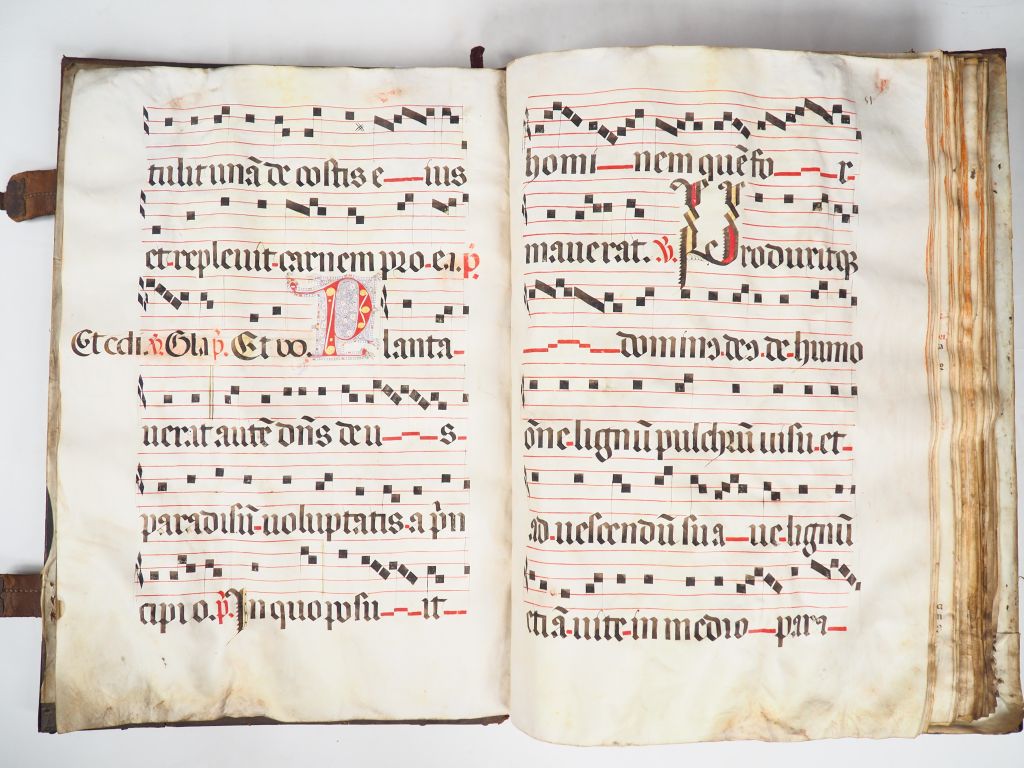 tulit unā de costis e ius
et replevit carnem pro ea. p.
Et edi. V. Gla p. Et vo. Planta
uerat autē dn̄s deu s
paradisū uoluptatis a p̄n
cipi o. p. In quo posu it
homi nem quē fo r
mauerat. V. Produxitqz
domin9 de9 de humo
ōne lignū pulchrū uisu et
ad uescendū su a ue lignū
etiā uite in medio para